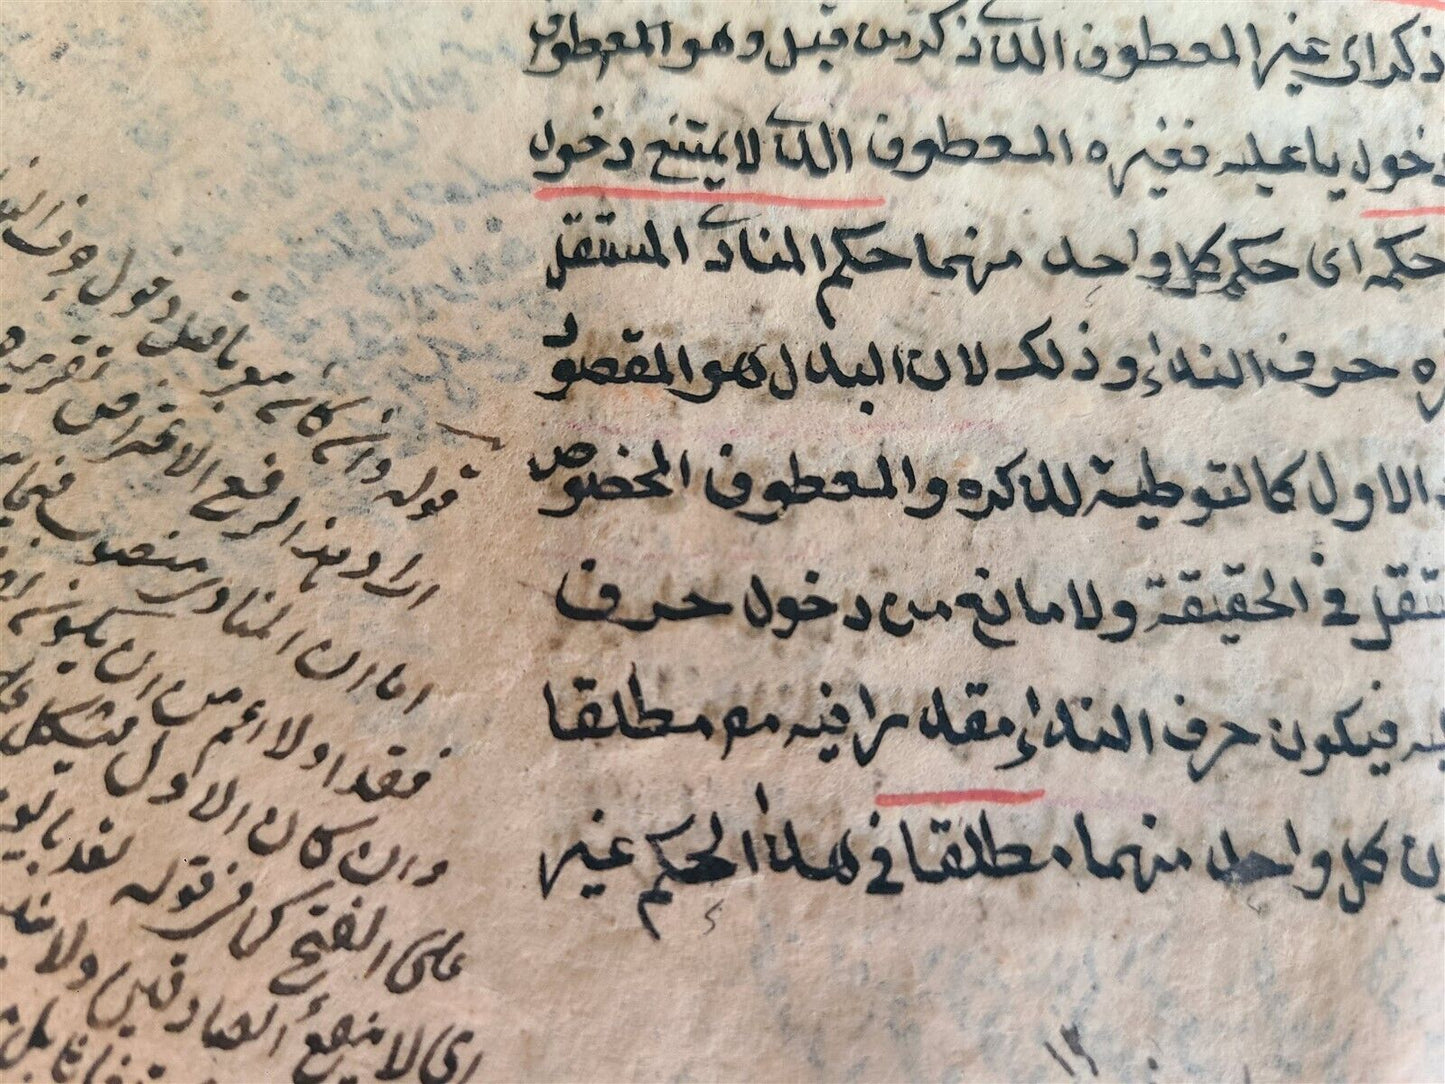 ذكر اى غير المعطوف الذى ذكر من قبل وهو المعطوف
دخول يا عليه فغيره المعطوف الذى لا يمتنع دخول
حكمه اى حكم كل واحد منهما حكم المنادى المستقل
حرف النداء وذلك لان البدل هو المقصود
والاول كالتوطية لذكره والمعطوف المخصوص
فى الحقيقة ولا مانع من دخول حرف
فيكون حرف النداء مقدرا فيه مطلقا
كل واحد منهما مطلقا فى هذا الحكم غير
١٢
قوله وان كان معربا قبل دخول حرف
اراد بهذا الرفع الاعتراض تقريره
اما ان المنادى منصوب
فقد اولا اعم من ان يكون
وان كان الاول يشكل
على الفتح كما فى قوله
اى لا ينفع الصادقين ولا